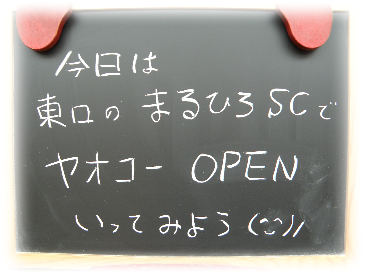 今日は
東口の まるひろSCで
ヤオコー OPEN
いってみよう (^^)//